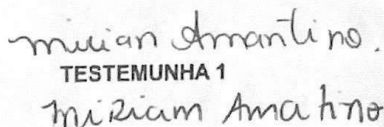 Mirian Amantino.
TESTEMUNHA 1
MiRiam Amatino